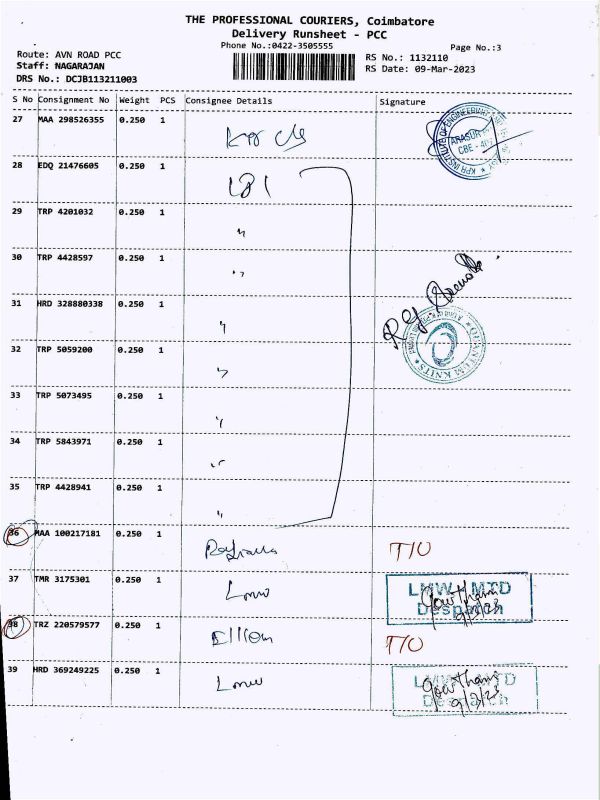 THE PROFESSIONAL COURIERS, Coimbatore
Delivery Runsheet - PCC
Phone No.:0422-3505555
Page No.:3
Route: AVN ROAD PCC
RS No.: 1132110
Staff: NAGARAJAN
RS Date: 09-Mar-2023
DRS No.: DCJB113211003
S No Consignment No Weight PCS Consignee Details Signature
27 MAA 298526355 0.250 1
ARASUR
CBE - 
28 EDQ 21476605 0.250 1
29 TRP 4201032 0.250 1 "
30 TRP 4428597 0.250 1 "
31 HRD 328880338 0.250 1 "
QUANTUM KNITS
32 TRP 5059200 0.250 1 "
33 TRP 5073495 0.250 1 "
34 TRP 5843971 0.250 1 "
35 TRP 4428941 0.250 1 "
36 MAA 100217181 0.250 1 T/O
37 TMR 3175301 0.250 1 LMW LMTD
Despatch
Gowtham
9/3/23
38 TRZ 220579577 0.250 1 T/O
39 HRD 369249225 0.250 1 LMW LMTD
Despatch
Gowtham
9/3/23